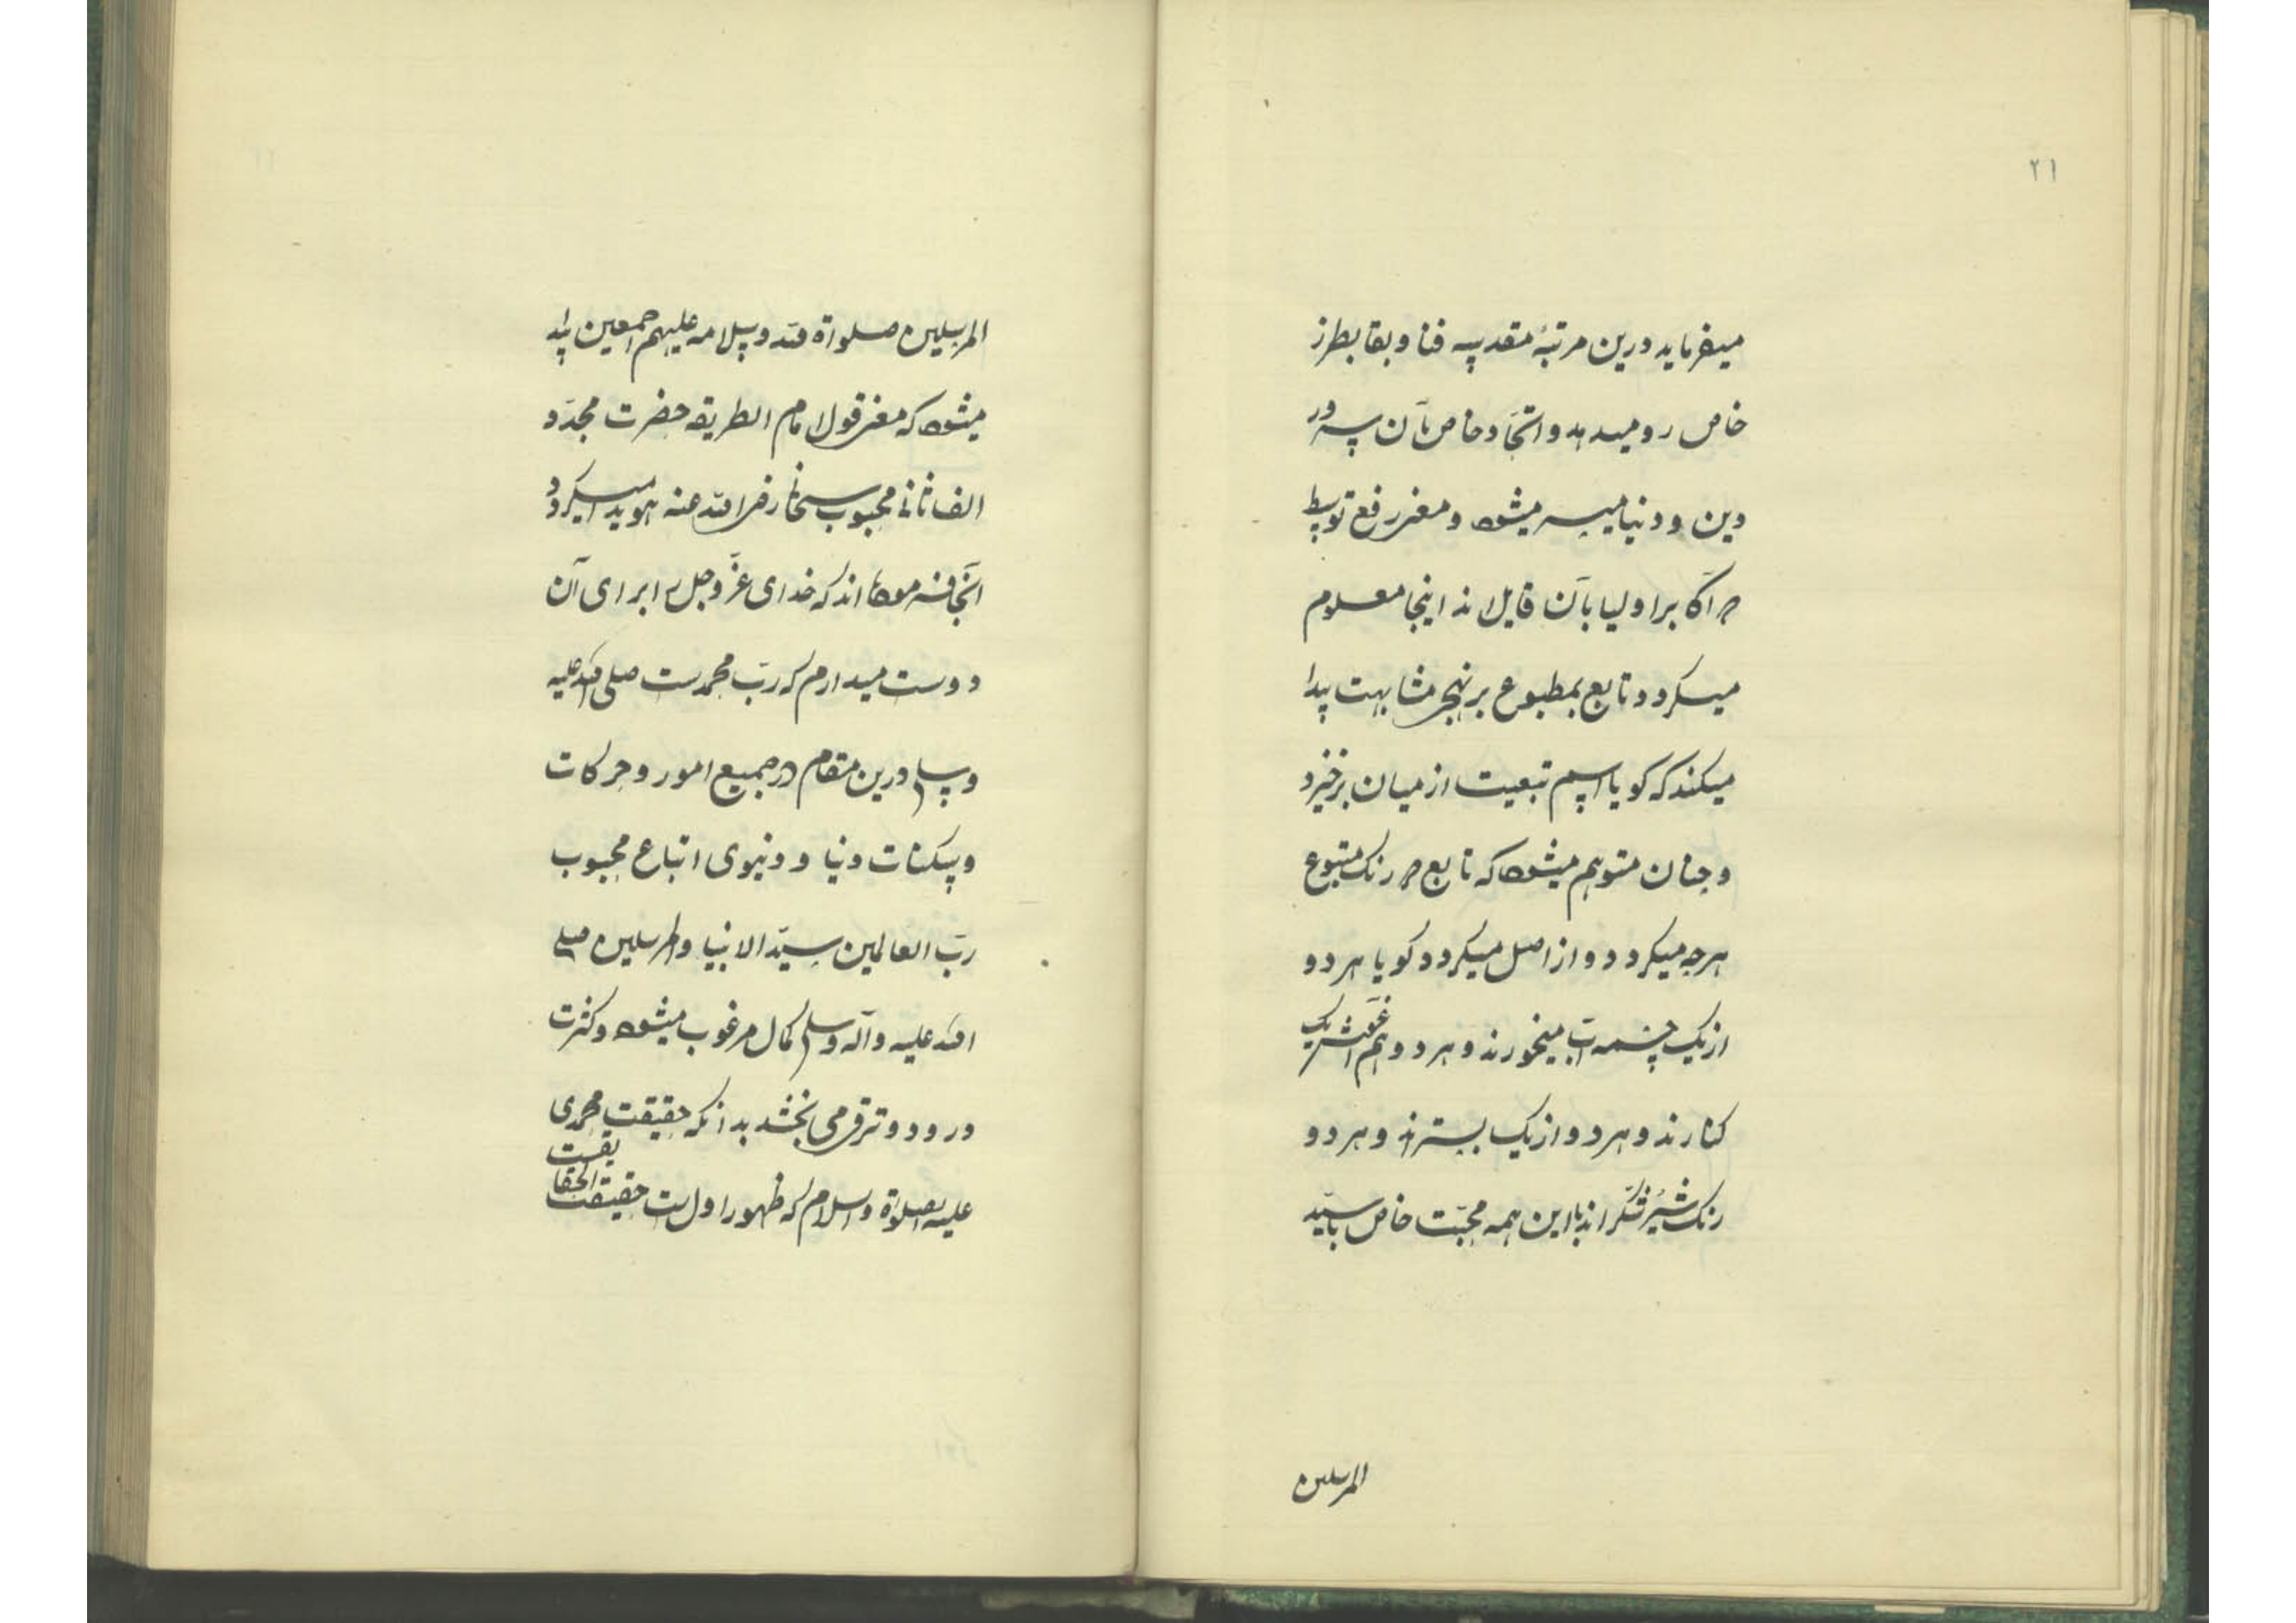 ۲۱
میفرماید درین مرتبهٔ مقدسه فنا و بقا بطرز
خاص رو میدهد و اتحاد خاص بآن سرور
دین و دنیا میسر میشود و معنی رفع توسط
که اکابر اولیا بآن قایل اند اینجا معلوم
میکردد و تابع بمطبوع بر نهجی مشابهت پیدا
میکند که کویا اسم تبعیت از میان برخیزد
و چنان متوهم میشود که تابع در رنک متبوع
هرچه میکردد و از اصل میکردد کویا هر دو
از یک چشمه آب میخورند و هر دو هم آغوش یک
کنارند و هر دو از یک بسترند و هر دو
رنک شیر و شکر اند با این همه محبّت خاص با سیّد
المرسلین
المرسلین صلواة الله و سلامه علیهم اجمعین پیدا
میشود که معنی قول امام الطریقه حضرت مجدّد
الف ثانی محبوب سبحانی رضی الله عنه هویدا میکردد
آنجا فرموده اند که خدای عزّ و جل را برای آن
دوست میدارم که ربّ محمدست صلی الله علیه
و سلم درین مقام در جمیع امور و حرکات
و سکنات دنیا و دنیوی اتباع محبوب
ربّ العالمین سیّد الانبیا والمرسلین صلی
الله علیه و آله وسلم کمال مرغوب میشود و کثرت
درود و ترقی می بخشد بدانکه حقیقت محمدی
علیه الصلواة والسلام که ظهور اول است حقیقت الحقایقست